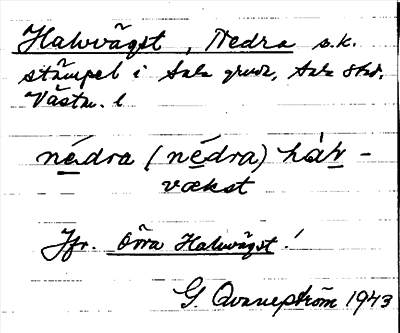 Halvvägst, Nedra s.k.
stämpel i Sala gruva, Sala stad.
Västm. l
nédra (nédra) hàlv-
vækst
Jfr. Övra Halvvägst!
G. Qvarnström 1943